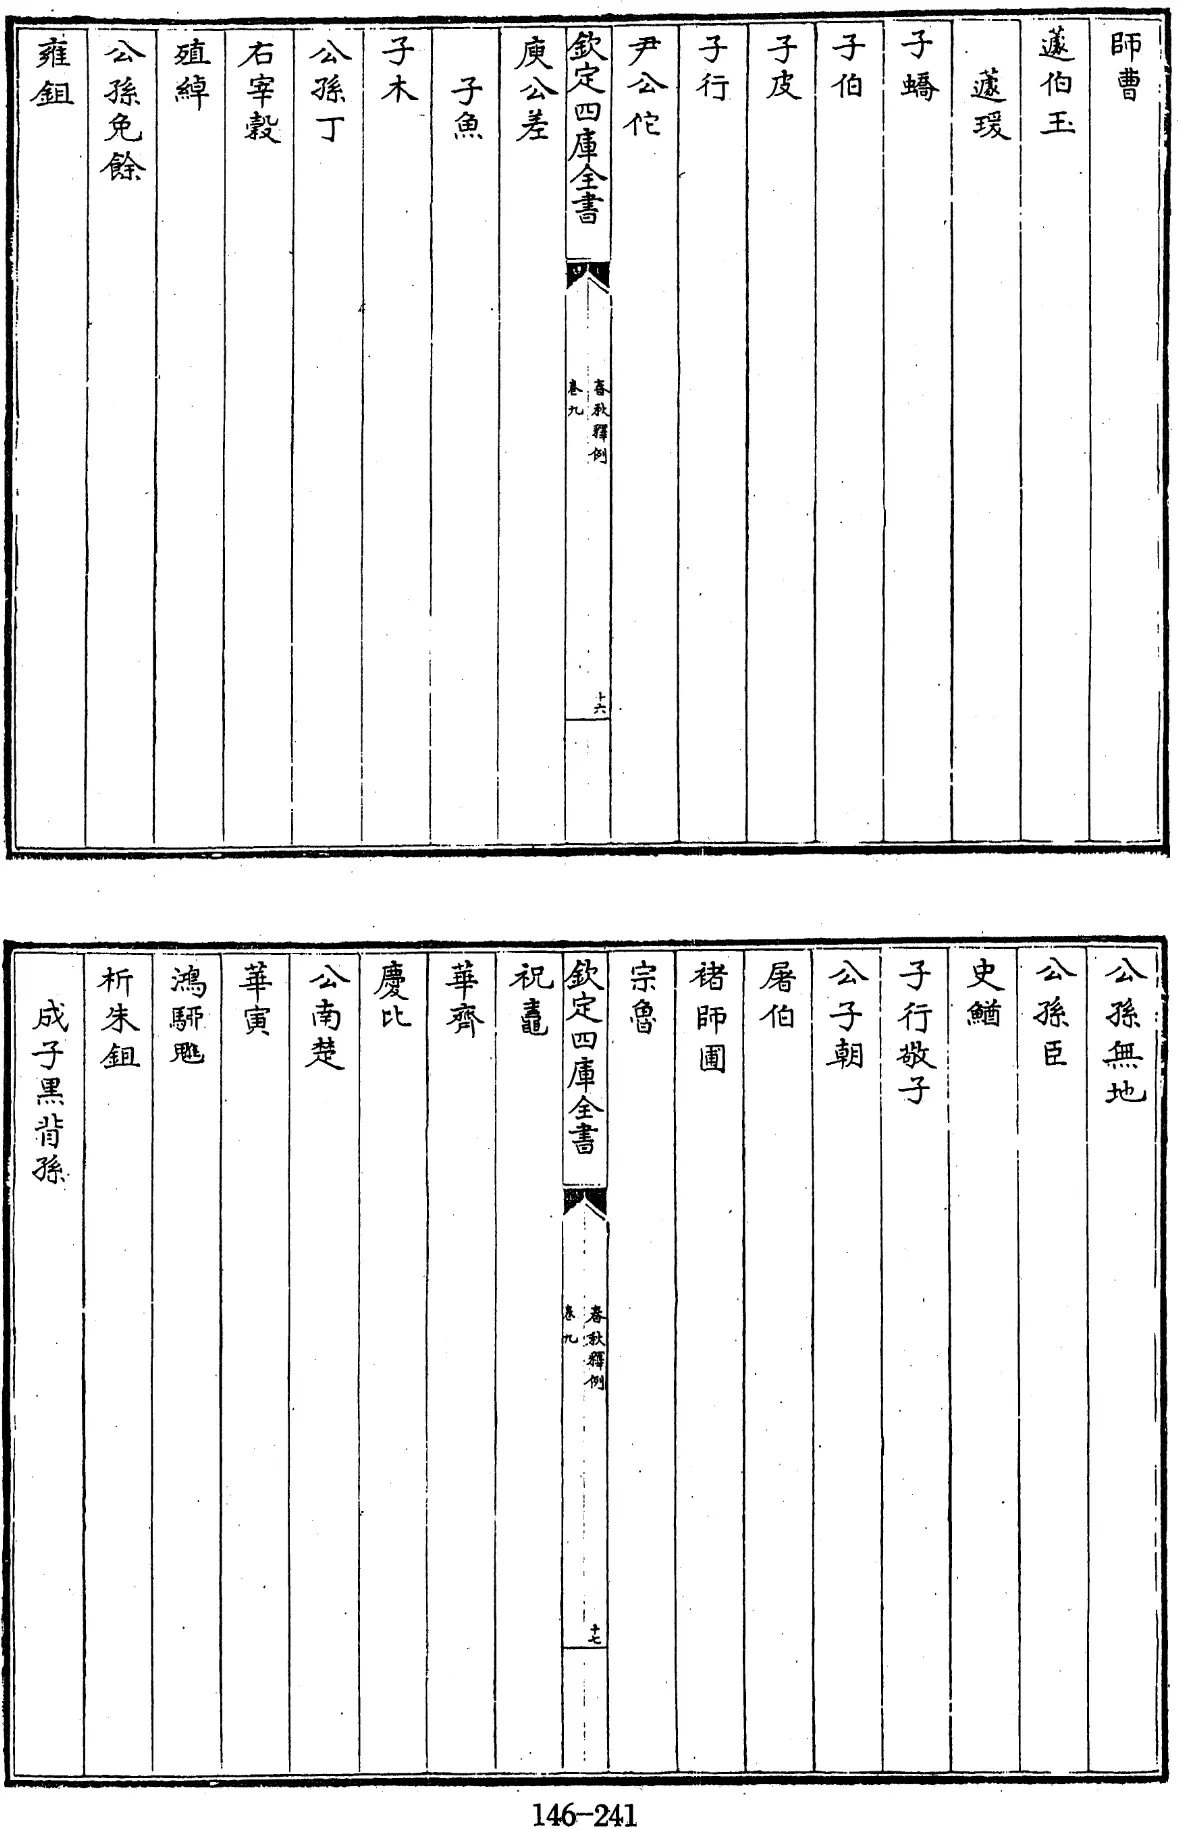 師曹
蘧伯玉
蘧瑗
子蟜
子伯
子皮
子行
尹公佗
欽定四庫全書
春秋釋例
卷九
十六
庾公差
子魚
子木
公孫丁
右宰穀
殖綽
公孫免餘
雍鉏
公孫無地
公孫臣
史鰌
子行敬子
公子朝
屠伯
褚師圃
宗魯
欽定四庫全書
春秋釋例
卷九
十七
祝鼃
華齊
慶比
公南楚
華寅
鴻駵魋
析朱鉏
成子黑背孫
146-241